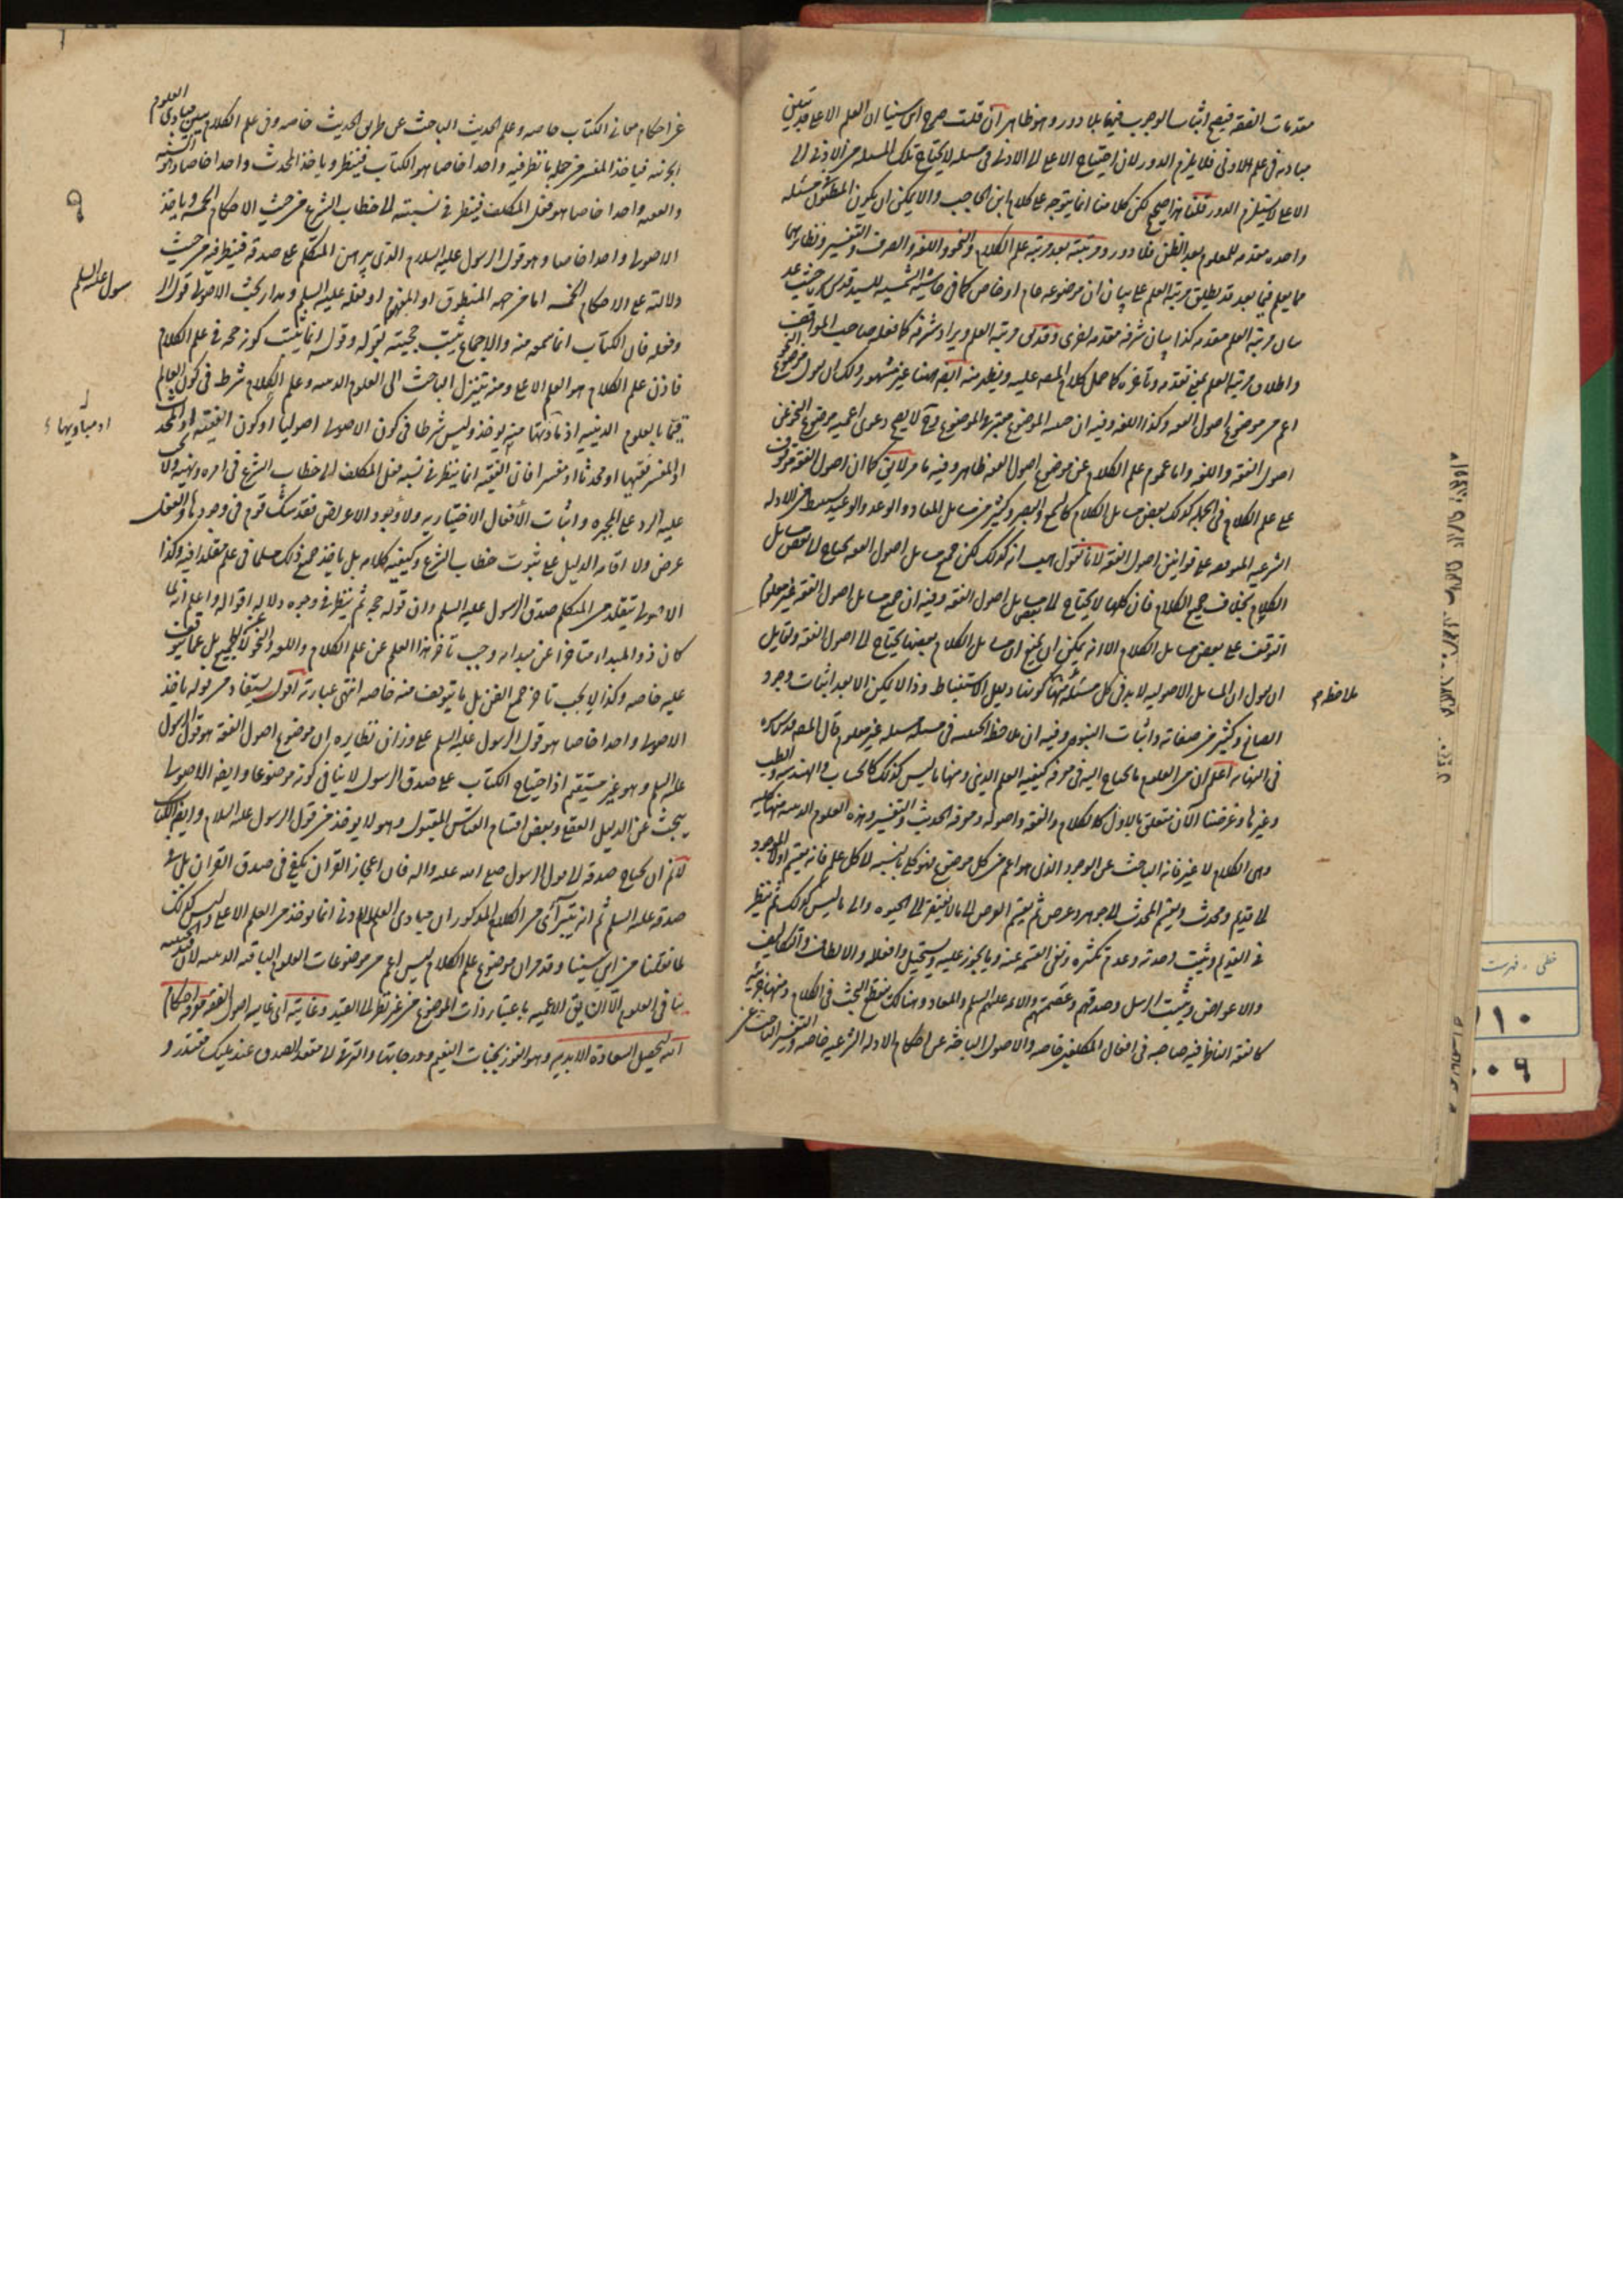 مقدمات الفقه فيصح اثبات الوجوب فيها بلا دور وهو ظاهر ان قلت صرح ابن سينا ان العلم الاعلى قد يتبين
مباديه في علم الادنى فلا يلزم الدور لان احتياج الاعلى الى الادنى في مسئله لا يحتاج تلك المسئله من الادنى الى
الاعلى لا يستلزم الدور قلنا هذا صحيح لكن كلامنا انما يتوجه على كلام ابن الحاجب والا يمكن ان يكون المظنون مسئله
واحده مقدمه للمعلوم بعد الظن فلا دور ومرتبته بعد مرتبة علم الكلام والنحو واللغه والصرف والتفسير ونظايرها
مما يعلم فيما بعد قد يطلق مرتبة العلم على بيان ان موضوعه عام او خاص كما في حاشية الشمسيه للسيد قدس سره حيث عد
بيان مرتبة العلم مقدمه كذا بيان شرفه مقدمه اخرى وقد مرتبة العلم ويراد شرفه كما فعله صاحب المواقف
واطلاق مرتبة العلم بمعنى تقدمه وتاخره كما حمل كلام المصه عليه ويظهر منه ايضا هنا غير مشهور ولك ان يقول موضوع النحو
اعم من موضوع اصول الفقه وكذا اللغه وفيه ان حيثية الموضوع معتبره في الموضوع فح لا يصح دعوى اعمية موضوع النحو عن
اصول الفقه واللغه واما عموم علم الكلام عن موضوع اصول الفقه ظاهر وفيه ما مر لا يق كما ان اصول الفقه موقوف
على علم الكلام في الجمله كذلك بعض مسايل الكلام كالسمع والبصر وكثير من مسايل المعاد والوعد والوعيد من الادله
الشرعيه الموقوفه على قوانين اصول الفقه لانا نقول هب انه كذلك لكن جميع مسايل اصول الفقه يحتاج الى بعض مسايل
الكلام بخلاف جميع الكلام فان كلها لا يحتاج الى مسايل اصول الفقه وفيه ان جميع مسايل اصول الفقه غير معلوم
التوقف على بعض مسايل الكلام الا انه يمكن ان يمنع ان مسايل الكلام بعضها يحتاج الى اصول الفقه ولقايل
ان يقول ان المسايل الاصوليه لا بد في كل مسئلة منها كونها دليل الاستنباط وذا لا يمكن الا بعد اثبات وجود
ملاحظه
الصانع وكثير من صفاته واثبات النبوه وفيه ان ملاحظ الحيثيه في مسئله مسئله غير معلوم قال المصه قدس سره
في النهايه اعلم ان من العلوم ما يحتاج اليه في معرفة كيفيه العلم الديني ومنها ما ليس كذلك كالحساب والهندسه والطب
وغيرها وغرضنا الآن متعلق بالاول كالكلام والفقه واصوله ومعرفة الحديث والتفسير وهذه العلوم الدينيه منها كليه
وهي الكلام لا غير فانه الباحث عن الوجود الذي هو اعم من كل موضوع فهو كلي بالنسبه الى كل علم فانه يقسم اولا الموجود
الى قديم ومحدث ويقسم المحدث الى جوهر وعرض ثم يقسم العرض الى ما لا يفتقر الى الحيوه والى ما ليس كذلك ثم ينظر
في القديم ويثبت وحدته وعدم تكثره ونفى القسمه عنه وما يجوز عليه ويستحيل وافعاله والالطاف والتكاليف
والاعواض ويثبت الرسل وصدقهم وعصمتهم والائمه عليهم السلم والمعاد وهناك ينقطع البحث في الكلام ومنها جزئيه
كالفقه الناظر فيه صاحبه في افعال المكلفين خاصه والاصول الباحثه عن احكام الادله الشرعيه خاصه والتفسير الباحث عن
عن احكام معاني الكتاب خاصه وعلم الحديث الباحث عن طريق الحديث خاصه وفي علم الكلام يتبين مبادى العلوم
الجزئيه فياخذ المفسر من جملة ما نظر فيه واحدا خاصا هو الكتاب فينظر وياخذ المحدث واحدا خاصا هو السنه
والفقيه واحدا خاصا هو فعل المكلف فينظر في نسبته الى خطاب الشرع من حيث الاحكام الخمسه وياخذ
٩
الاصولى واحدا خاصا وهو قول الرسول عليه السلام الذي برهن المتكلم على صدقه فينظر فيه من حيث
دلالته على الاحكام الخمسه اما من جهه المنطوق او المفهوم او فعله عليه السلم ومدار بحث الاصولى قول ال
رسول عليه السلم
وفعله فان الكتاب انما سمعه منه والاجماع يثبت حجيته بقوله وقوله انما يثبت كونه حجه في علم الكلام
فاذن علم الكلام هو العلم الاعلى ومنه يتنزل الباحث الى العلوم الدينيه وعلم الكلام شرط في كون العالم
قيما بالعلوم الدينيه اذ مباديها منه يوخذ وليس شرطا في كون الاصولى اصوليا او كون الفقيه او المحدث
اذ مباديها
او المفسر فقيها او محدثا او مفسرا فان الفقيه انما ينظر في نسبه فعل المكلف الى خطاب الشرع في امره ونهيه ولا يجب
عليه الرد على المجبره واثبات الافعال الاختياريه ولا وجود الاعراض فقد شك قوم في وجودها والفعل
عرض ولا اقامه الدليل على ثبوت خطاب الشرع وكيفيه كلامه بل ياخذ جميع ذلك مسلما في علم مقلدا فيه وكذا
الاصولى يتقلد من المتكلم صدق الرسول عليه السلم وان قوله حجه ثم ينظر في وجوه دلاله اقواله واعلم انه لما
كان ذو المبدا متاخرا عن مبداه وجب تاخر هذا العلم عن علم الكلام واللغه والنحو لا الجميع بل عما يتوقف
عليه خاصه وكذا لا يجب تاخر جميع الفن بل ما يتوقف منه خاصه انتهى عبارته اقول يستفاد من قوله ياخذ
الاصولى واحدا خاصا هو قول الرسول عليه السلم على وزان نظايره ان موضوع اصول الفقه هو قول الرسول
عليه السلم وهو غير مستقيم اذ احتياج الكتاب على صدق الرسول لا ينافي كونه موضوعا وايضا الاصولى
يبحث عن الدليل العقلى وبعض اقسام القياس المقبول وهو لا يوخذ من قول الرسول عليه السلام وايضا الكتاب
لانم ان يحتاج صدقه الى قول الرسول صلى الله عليه واله فان اعجاز القران يكفي في صدق القران بل في
صدقه عليه السلم ثم انه يتراآى من الكلام المذكور ان مبادى العلم الادنى انما يوخذ من العلم الاعلى وليس كذلك
لما نقلنا من ابن سينا وقد مر ان موضوع علم الكلام ليس اعم من موضوعات العلوم الباقيه الدينيه لان الحيثيه
ينافى العلوم الا ان يق الاعميه باعتبار ذات الموضوع من غير نظر الى القيد وغايته اى غايه اصول الفقه معرفة احكام
الله لتحصيل السعادة الابديه وهو الفوز بجنات النعيم ودرجاتها والترقي الى مقعد الصدق عند مليك مقتدر و